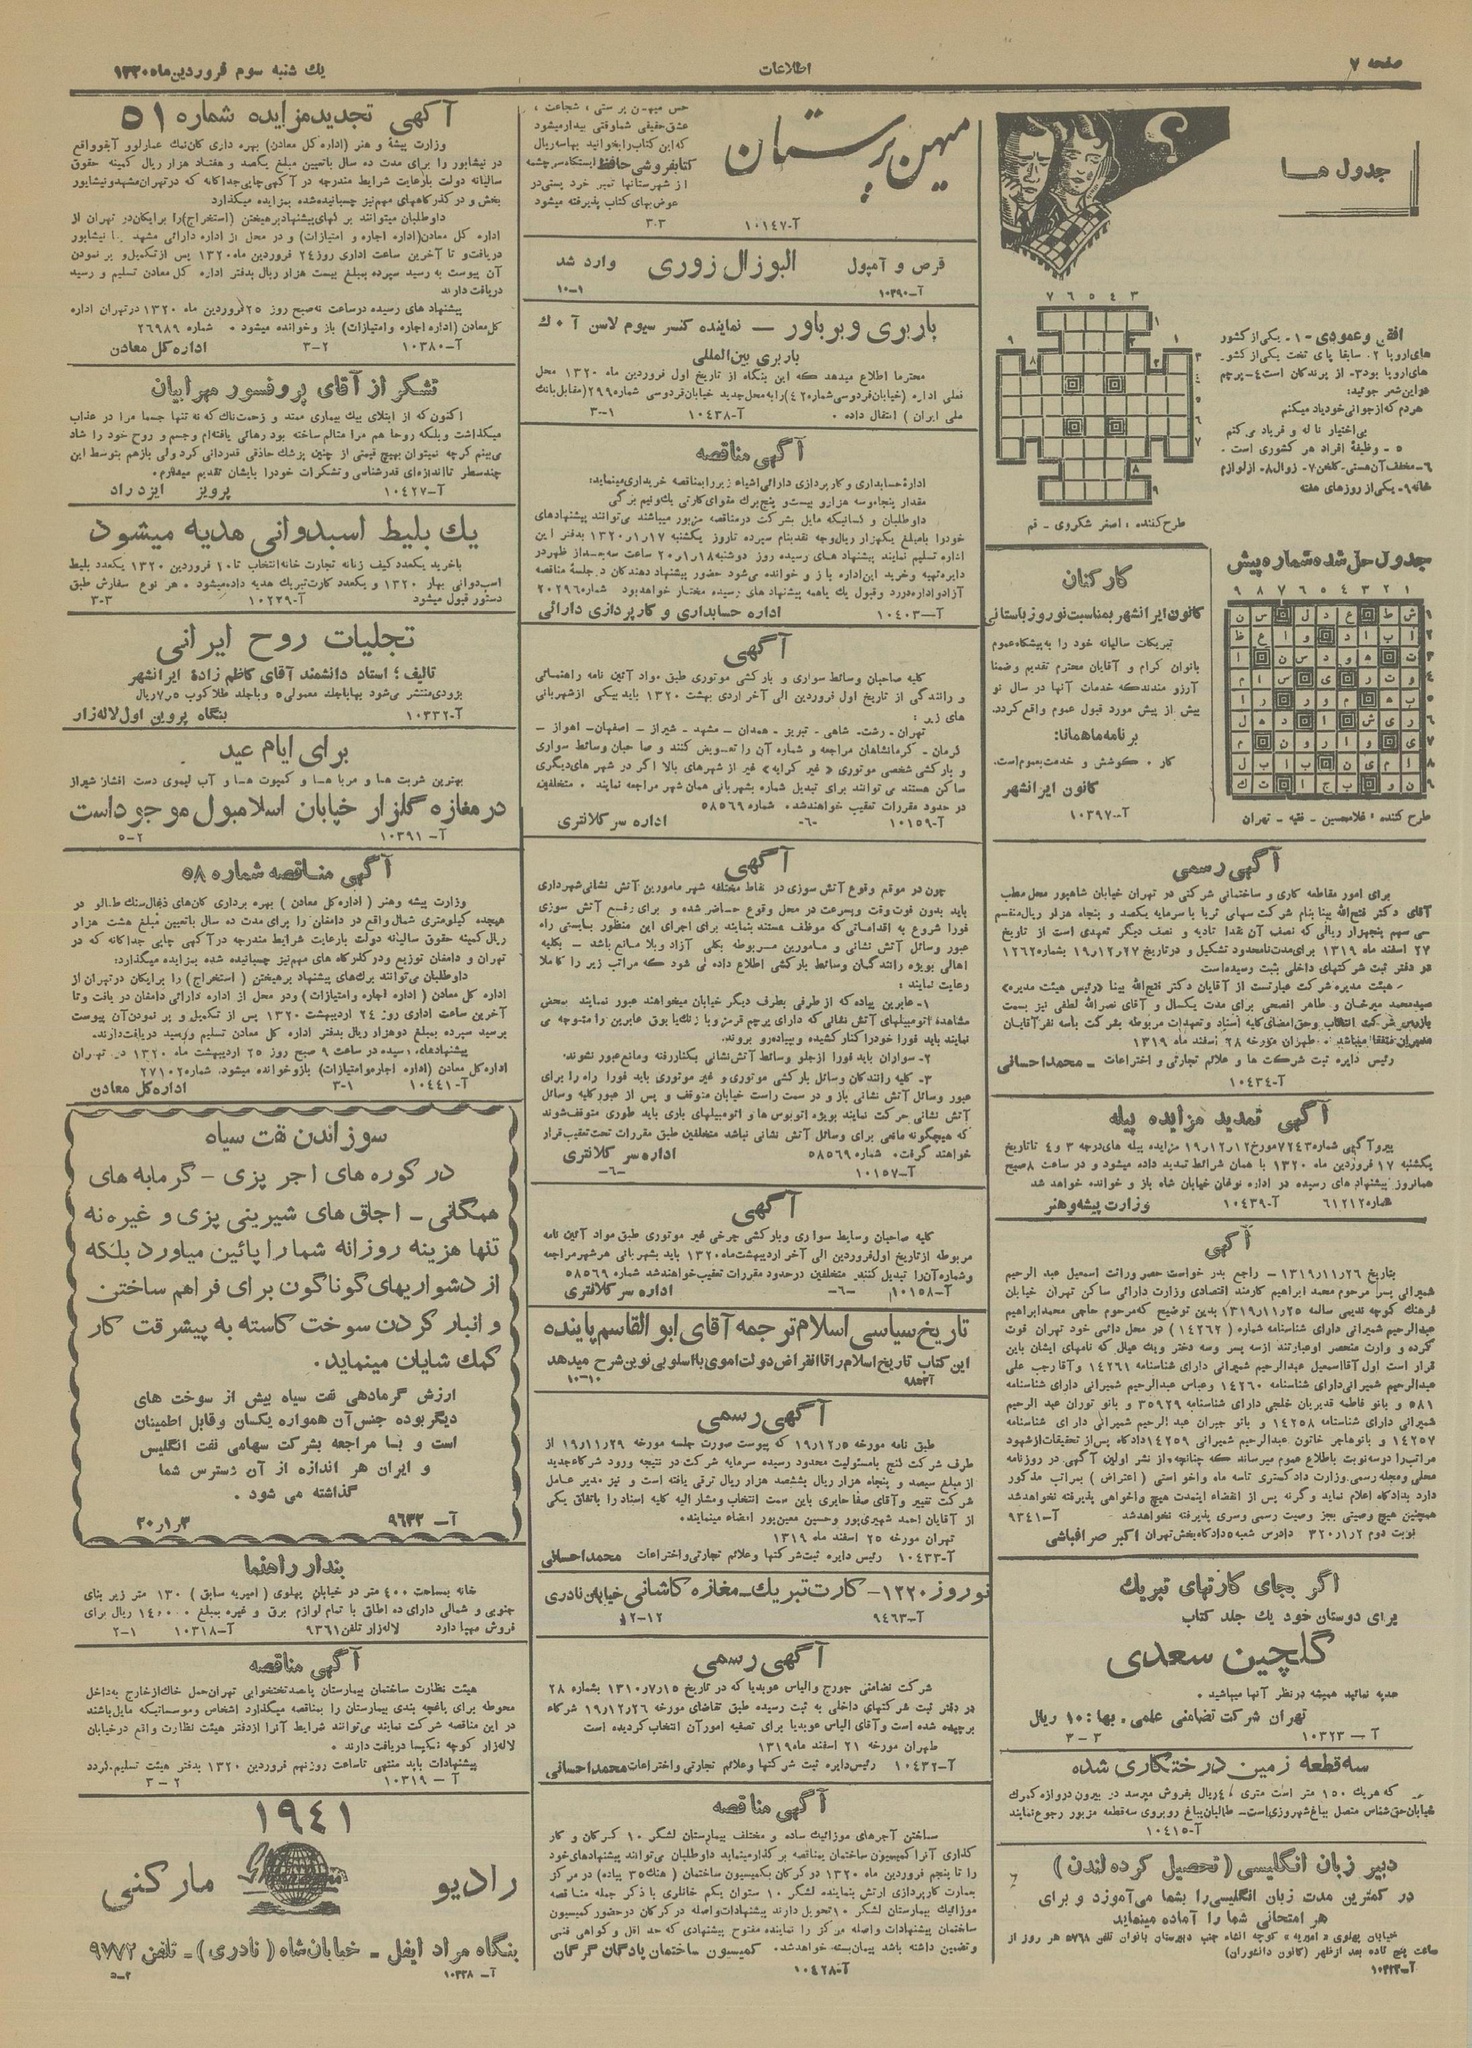 صفحه ۷
اطلاعات
یك شنبه سوم فروردین ماه ۱۳۲۰
جدول ها
افقی وعمودی -۱- یکی از کشور
های اروپا ۲. سابقا پای تخت یکی از کشور-
های اروپا بود۳- از پرندگان است٤- پرچم
هواین شعر جوئید:
هردم که ازجوانی خودیاد میکنم
بی اختیار ناله و فریاد می کنم
۵ - وظیفهٔ افراد هر کشوری است .
خانه ۹- یکی از روزهای هفته
طرح کننده ، اصغر شکروی - قم
جدول حل شده شماره پیش
طرح کننده ، غلامحسین - فقیه - تهران
کارکنان
کانون ایرانشهر بمناسبت نوروز باستانی
تبریکات سالیانه خود را به پیشگاه عموم
بانوان کرام و آقایان محترم تقدیم وضمنا
آرزو مندند که خدمات آنها در سال نو
بیش از پیش مورد قبول عموم واقع گردد.
برنامه ماهمانا:
کار . کوشش و خدمت بعموم است.
کانون ایرانشهر
آ-۱۰۳۹۷
آگهی رسمی
برای امور مقاطعه کاری و ساختمانی شرکتی در تهران خیابان شاهپور محل مطب
آقای دکتر فتح الله بینا بنام شرکت سهامی ثریا با سرمایه یکصد و پنجاه هزار ریال منقسم
بسی سهم پنجهزار ریالی که نصف آن نقدا تادیه و نصف دیگر تعهدی است از تاریخ
۲۷ اسفند ماه ۱۳۱۹ برای مدت نامحدود تشکیل و در تاریخ ۱۹٫۱۲٫۲۷ بشماره ۱۲۶۲
در دفتر ثبت شرکتهای داخلی بثبت رسیده است
هیئت مدیره شرکت عبارتست از آقایان دکتر فتح الله بینا (رئیس هیئت مدیره)
سیدمحمد میرخان و طاهر افصحی برای مدت یکسال و آقای نصرالله لطفی نیز بسمت
بازرس شرکت انتخاب وحق امضای کلیه اسناد و تعهدات مربوطه بشرکت باسه نفر آقایان
مدیران متفقا میباشد . طهران مورخه ۲۸ اسفند ماه ۱۳۱۹
رئیس دایره ثبت شرکت ها و علائم تجارتی و اختراعات - محمداحسانی
آ-۱۰٤۳٤
آگهی تمدید مزایده پیله
پیرو آگهی شماره ۷۲٤۳ مورخ ۱۹٫۱۲٫۱۲ مزایده پیله های درجه ۳ و ٤ تا تاریخ
یکشنبه ۱۷ فروردین ماه ۱۳۲۰ با همان شرائط تمدید داده میشود و در ساعت ۸ صبح
همانروز پیشنهاد های رسیده در اداره نوغان خیابان شاه باز و خوانده خواهد شد
شماره ۶۱۲۱۲ آ-۱۰٤۳۹ وزارت پیشه وهنر
آگهی
بتاریخ ۱۳۱۹٫۱۱٫۲۶ - راجع بدر خواست حصر وراثت اسمعیل عبد الرحیم
شمیرانی پسر مرحوم محمد ابراهیم کارمند اقتصادی وزارت دارائی ساکن تهران خیابان
فرهنگ کوچه قدیمی سالمه ۱۳۱۹٫۱۱٫۲۵ بدین توضیح که مرحوم حاجی محمدابراهیم
عبدالرحیم شمیرانی دارای شناسنامه شماره (۱٤۲۶۲) در محل دائمی خود تهران فوت
کرده و وارث منحصر اوعبارتند ازسه پسر وسه دختر ویك عیال که نامهای ایشان باین
قرار است اول آقااسمعیل عبدالرحیم شمیرانی دارای شناسنامه ۱٤۲۶۱ وآقارجب علی
عبدالرحیم شمیرانی دارای شناسنامه ۱٤۲۶۰ وعباس عبدالرحیم شمیرانی دارای شناسنامه
۵۸۱ و بانو فاطمه قدیریان خلجی دارای شناسنامه ۳۵۹۲۹ و بانو توران عبد الرحیم
شمیرانی دارای شناسنامه ۱٤۲۵۸ و بانو جیران عبد الرحیم شمیرانی دارای شناسنامه
۱٤۲۵۷ و بانوهاجر خاتون عبدالرحیم شمیرانی ۱٤۲۵۹ دادگاه پس از تحقیقات ازشهود
مراتب را دره نوبت باطلاع عموم میرساند که چنانچه از نشر اولین آگهی در روزنامه
محلی و مجله رسمی وزارت دادگستری تاسه ماه واخواستی (اعتراض) بمراتب مذکور
دارد بدادگاه اعلام نماید و گرنه پس از انقضاء اینمدت هیچ واخواهی پذیرفته نخواهدشد
همچنین هیچ وصیتی بجز وصیت رسمی وسری پذیرفته نخواهدشد آ-۹۳٤۱
نوبت دوم ۳۲۰٫۱٫۲ دادرس شعبه ۵ دادگاه بخش تهران اکبر صرافباشی
اگر بجای کارتهای تبریك
برای دوستان خود یك جلد کتاب
گلچین سعدی
هدیه نمائید همیشه در نظر آنها میباشید .
تهران شرکت تضامنی علمی . بها : ۱۰ ریال
آ - ۱۰۳۲۳ ۳ - ۳
سه قطعه زمین درختکاری شده
که هریك ۱۵۰ متر است متری ٤۰ ریال بفروش میرسد در بیرون دروازه گمرك
خیابان حق شناس متصل بباغ شهروزی است- طالبان بباغ روبروی سه قطعه مزبور رجوع نمایند
آ-۱۰٤۱۵
دبیر زبان انگلیسی (تحصیل کرده لندن)
در کمترین مدت زبان انگلیسی را بشما می آموزد و برای
هر امتحانی شما را آماده مینماید
خیابان پهلوی « امیریه » کوچه انشاء جنب دبیرستان بانوان تلفن ۵۷۶۸ هر روز از
ساعت پنج تاده بعد ازظهر (کانون دانشوران)
میهن پرستان
حس میهن پرستی ، شجاعت ،
عشق حقیقی شما وقتی بیدار میشود
که این کتاب را بخوانید بها سه ریال
کتابفروشی حافظ ایستگاه سرچشمه
از شهرستانها تمبر خرد پستی در
عوض بهای کتاب پذیرفته میشود
آ-۱۰۱٤۷ ۳-۳
قرص و آمپول البوزال زوری وارد شد
آ-۱۰۳۹۰ ۱-۱۰
باربری وبرباور - نماینده کنسر سیوم لاسن آ ۰ ك
باربری بین المللی
محترما اطلاع میدهد که این بنگاه از تاریخ اول فروردین ماه ۱۳۲۰ محل
فعلی اداره (خیابان فردوسی شماره ٤۲) را به محل جدید خیابان فردوسی شماره ۲۹۹ (مقابل بانك
ملی ایران) انتقال داده . آ-۱۰٤۳۸ ۱-۳
آگهی مناقصه
ادارهٔ حسابداری و کارپردازی دارائی اشیاء زیر را بمناقصه خریداری مینماید:
مقدار پنجاه وسه هزار و بیست و پنج برك مقوای کارتی یك ونیم برگی
داوطلبان و کسانیکه مایل بشرکت در مناقصه مزبور میباشند می توانند پیشنهادهای
خود را بامبلغ یکهزار ریال وجه نقد بنام سپرده تا روز یکشنبه ۱۳۲۰٫۱٫۱۷ بدفتر این
اداره تسلیم نمایند پیشنهاد های رسیده روز دوشنبه ۲۰٫۱٫۱۸ ساعت سه بعد از ظهر در
دایره تهیه و خرید این اداره باز و خوانده می شود حضور پیشنهاد دهندگان در جلسهٔ مناقصه
آزاد و اداره در رد و قبول یك یا همه پیشنهاد های رسیده مختار خواهد بود شماره ۲۰۲۹۶
آ-۱۰٤۰۳ اداره حسابداری و کارپردازی دارائی
آگهی
کلیه صاحبان وسائط سواری و بارکشی موتوری طبق مواد آئین نامه راهنمائی
و رانندگی از تاریخ اول فروردین الی آخر اردی بهشت ۱۳۲۰ باید بیکی از شهربانی
های زیر :
تهران - رشت- شاهی - تبریز - همدان - مشهد - شیراز - اصفهان- اهواز -
کرمان - کرمانشاهان مراجعه و شماره آن را تعویض کنند و صاحبان وسائط سواری
و بارکشی شخصی موتوری «غیر کرایه» غیر از شهرهای بالا اگر در شهر های دیگری
ساکن هستند می توانند برای تبدیل شماره بشهربانی همان شهر مراجعه نمایند . متخلفین
در حدود مقررات تعقیب خواهند شد. شماره ۵۸۵۶۹
آ-۱۰۱۵۹ -۶- اداره سر کلانتری
آگهی
چون در موقع وقوع آتش سوزی در نقاط مختلفه شهر مامورین آتش نشانی شهرداری
باید بدون فوت وقت و بسرعت در محل وقوع حاضر شده و برای رفع آتش سوزی
فورا شروع به اقداماتی که موظف هستند بنمایند برای اجرای این منظور بایستی راه
عبور وسائل آتش نشانی و مامورین مربوطه بکلی آزاد و بلا مانع باشد - بکلیه
اهالی بویژه رانندگان وسائط بارکشی اطلاع داده می شود که مراتب زیر را کاملا
رعایت نمایند :
۱- عابرین پیاده که از طرفی بطرف دیگر خیابان میخواهند عبور نمایند بمحض
مشاهده اتومبیلهای آتش نشانی که دارای پرچم قرمز و با زنك یا بوق عابرین را متوجه می
نمایند باید فورا خود را کنار کشیده و به پیاده رو بروند.
۲- سواران باید فورا از جلو وسائط آتش نشانی بکنار رفته و مانع عبور نشوند.
۳- کلیه رانندگان وسائل بارکشی موتوری و غیر موتوری باید فورا راه را برای
عبور وسائل آتش نشانی باز و در سمت راست خیابان متوقف و پس از عبور کلیه وسائل
آتش نشانی حرکت نمایند بویژه اتوبوس ها و اتومبیلهای باری باید طوری متوقف شوند
که هیچگونه مانعی برای وسائل آتش نشانی نباشد متخلفین طبق مقررات تحت تعقیب قرار
خواهند گرفت. شماره ۵۸۵۶۹ اداره سر کلانتری
آ-۱۰۱۵۷ -۶-
آگهی
کلیه صاحبان وسایط سواری و بارکشی چرخی غیر موتوری طبق مواد آئین نامه
مربوطه از تاریخ اول فروردین الی آخر اردیبهشت ماه ۱۳۲۰ باید بشهربانی هر شهر مراجعه
و شماره آن را تبدیل کنند. متخلفین در حدود مقررات تعقیب خواهند شد شماره ۵۸۵۶۹
آ-۱۰۱۵۸ -۶- اداره سر کلانتری
تاریخ سیاسی اسلام ترجمه آقای ابوالقاسم پاینده
این کتاب تاریخ اسلام را تا انقراض دولت اموی با اسلوبی نوین شرح میدهد
۱۰-۱۰
آگهی رسمی
طبق نامه مورخه ۱۹٫۱۲٫۵ که پیوست صورت جلسه مورخه ۱۹٫۱۱٫۲۹ از
طرف شرکت گنج بامسئولیت محدود رسیده سرمایه شرکت در نتیجه ورود شرکاء جدید
از مبلغ سیصد و پنجاه هزار ریال بششصد هزار ریال ترقی یافته است و نیز مدیر عامل
شرکت تغییر و آقای صفا حایری باین سمت انتخاب و مشار الیه کلیه اسناد را باتفاق یکی
از آقایان احمد شهیری پور وحسین معین پور امضاء مینمایند.
تهران مورخه ۲۵ اسفند ماه ۱۳۱۹
آ-۱۰٤۳۳ رئیس دایره ثبت شرکتها وعلائم تجارتی واختراعات محمداحسانی
نوروز ۱۳۲۰- کارت تبریك- مغازه کاشانی خیابان نادری
آ-۹٤۶۳ ۱۲-۱۲
آگهی رسمی
شرکت تضامنی جورج والیاس عوبدیا که در تاریخ ۱۳۱۰٫۷٫۱۵ بشماره ۲۸
در دفتر ثبت شرکتهای داخلی به ثبت رسیده طبق تقاضای مورخه ۱۹٫۱۲٫۲۶ شرکاء
برچیده شده است و آقای الیاس عوبدیا برای تصفیه امور آن انتخاب گردیده است
طهران مورخه ۲۱ اسفند ماه ۱۳۱۹
آ-۱۰٤۳۲ رئیس دایره ثبت شرکتها وعلائم تجارتی و اختراعات محمداحسانی
آگهی مناقصه
ساختن آجرهای موزائیك ساده و مختلف بیمارستان لشگر ۱۰ گرگان و کار
گذاری آنرا کمیسیون ساختمان بمناقصه برگذار مینماید داوطلبان می توانند پیشنهادهای خود
را تا پنجم فروردین ماه ۱۳۲۰ در گرگان بکمیسیون ساختمان (هنك ۳۵ پیاده) در مرکز
بعمارت کارپردازی ارتش بنماینده لشگر ۱۰ ستوان یکم خانلری با ذکر جمله مناقصه
موزائیك بیمارستان لشگر ۱۰ تحویل دارند پیشنهادات واصله در گرگان در حضور کمیسیون
ساختمان پیشنهادات واصله مرکز را نماینده مفتوح پیشنهادی که حد اقل و گواهی فنی
و تضمین داشته باشد پیمان بسته خواهد شد. کمیسیون ساختمان پادگان گرگان
آ-۱۰٤۲۸
آگهی تجدید مزایده شماره ۵۱
وزارت پیشه و هنر (اداره کل معادن) بهره داری کان نمك عمارلوو آبقو واقع
در نیشابور را برای مدت ده سال باتعیین مبلغ یکصد و هفتاد هزار ریال کمینه حقوق
سالیانه دولت بارعایت شرایط مندرجه در آگهی چاپی جداگانه که در تهران مشهد و نیشابور
بخش و در گذرگاههای مهم نیز چسبانیده شده بمزایده میگذارد
داوطلبان میتوانند برگهای پیشنهاد برهیختن (استخراج) را برایگان در تهران از
اداره کل معادن (اداره اجاره و امتیازات) و در محل از اداره دارائی مشهد یا نیشابور
دریافت و تا آخرین ساعت اداری روز ۲٤ فروردین ماه ۱۳۲۰ پس از تکمیل و پر نمودن
آن پیوست به رسید سپرده بمبلغ بیست هزار ریال بدفتر اداره کل معادن تسلیم و رسید
دریافت دارند
پیشنهاد های رسیده در ساعت نه صبح روز ۲۵ فروردین ماه ۱۳۲۰ در تهران اداره
کل معادن (اداره اجاره وامتیازات) باز وخوانده میشود . شماره ۲۶۹۸۹
آ-۱۰۳۸۰ ۲-۳ اداره کل معادن
تشکر از آقای پروفسور مهرابیان
اکنون که از ابتلای بیك بیماری ممتد و زحمت ناك که نه تنها جسما مرا در عذاب
میگذاشت و بلکه روحا هم مرا متالم ساخته بود رهائی یافته ام وجسم و روح خود را شاد
می بینم گرچه نمیتوان بهیچ قیمتی از چنین پزشك حاذقی قدردانی کرد ولی باز هم بتوسط این
چند سطر تا اندازه ای قدرشناسی و تشکرات خود را بایشان تقدیم میدارم.
آ-۱۰٤۲۷ پرویز ایزدراد
یك بلیط اسبدوانی هدیه میشود
باخرید یکعدد کیف زنانه تجارت خانه انتخاب تا ۱۰ فروردین ۱۳۲۰ یکعدد بلیط
اسب دوانی بهار ۱۳۲۰ و یکعدد کارت تبریك هدیه داده میشود . هر نوع سفارش طبق
دستور قبول میشود آ-۱۰۲۳۹ ۳-۳
تجلیات روح ایرانی
تالیف ؛ استاد دانشمند آقای کاظم زادهٔ ایرانشهر
بزودی منتشر می شود بها باجلد معمولی ۵ و باجلد طلا کوب ۷٫۵ ریال
آ-۱۰۳۳۲ بنگاه پروین اول لاله زار
برای ایام عید
بهترین شربت ها و مربا ها و کمپوت ها و آب لیموی دست افشار شیراز
در مغازه گلزار خیابان اسلامبول موجود است
آ- ۱۰۳۹۱ ۲-۵
آگهی مناقصه شماره ۵۸
وزارت پیشه وهنر (اداره کل معادن) بهره برداری کان های ذغال سنك طالو در
هیجده کیلومتری شمال واقع در دامغان را برای مدت ده سال باتعیین مبلغ هشت هزار
ریال کمینه حقوق سالیانه دولت بارعایت شرایط مندرجه در آگهی چاپی جداگانه که در
تهران و دامغان توزیع و در گذرگاه های مهم نیز چسبانیده شده بمزایده میگذارد:
داوطلبان می توانند برك های پیشنهاد برهیختن (استخراج) را برایگان در تهران از
اداره کل معادن (اداره اجاره وامتیازات) و در محل از اداره دارائی دامغان در یافت و تا
آخرین ساعت اداری روز ۲٤ اردیبهشت ماه ۱۳۲۰ پس از تکمیل و پر نمودن آن پیوست
برسید سپرده بمبلغ دوهزار ریال بدفتر اداره کل معادن تسلیم و رسید دریافت دارند.
پیشنهادهای رسیده در ساعت ۹ صبح روز ۲۵ اردیبهشت ماه ۱۳۲۰ در تهران
اداره کل معادن (اداره اجاره وامتیازات) باز و خوانده میشود. شماره ۲۷۱۰۲
آ-۱۰٤٤۱ ۱-۳ اداره کل معادن
سوزاندن نفت سیاه
در کوره های اجر پزی - گرمابه های
همگانی - اجاق های شیرینی پزی و غیره نه
تنها هزینه روزانه شما را پائین میاورد بلکه
از دشواریهای گوناگون برای فراهم ساختن
و انبار کردن سوخت کاسته به پیشرفت کار
کمك شایان مینماید.
ارزش گرمادهی نفت سیاه بیش از سوخت های
دیگر بوده جنس آن همواره یکسان و قابل اطمینان
است و بسا مراجعه بشرکت سهامی نفت انگلیس
و ایران هر اندازه از آن دسترس شما
گذاشته می شود .
آ- ۹۶۳۲ ۲۰٫۱٫۳
بندار راهنما
خانه بمساحت ٤۰۰ متر در خیابان پهلوی (امیریه سابق) ۱۳۰ متر زیر بنای
جنوبی و شمالی دارای ده اطاق با تمام لوازم برق و غیره بمبلغ ۱٤۰۰۰۰ ریال برای
فروش مهیا دارد لاله زار تلفن ۹۳۶۱ آ-۱۰۳۱۸ ۱-۲
آگهی مناقصه
هیئت نظارت ساختمان بیمارستان پانصد تختخوابی تهران حمل خاك از خارج به داخل
محوطه برای باغچه بندی بیمارستان را بمناقصه میگذارد اشخاص و موسساتیکه مایل باشند
در این مناقصه شرکت نمایند می توانند شرایط آنرا از دفتر هیئت نظارت واقع در خیابان
لاله زار کوچه نکیسا دریافت دارند .
پیشنهادات باید منتهی تا ساعت روز نهم فروردین ۱۳۲۰ بدفتر هیئت تسلیم گردد
آ - ۱۰۳۱۹ ۲ - ۳
۱۹٤۱
رادیو مارکنی
بنگاه مراد ایفل - خیابان شاه (نادری) - تلفن ۹۷۷۲
آ- ۱۰۳۳۸